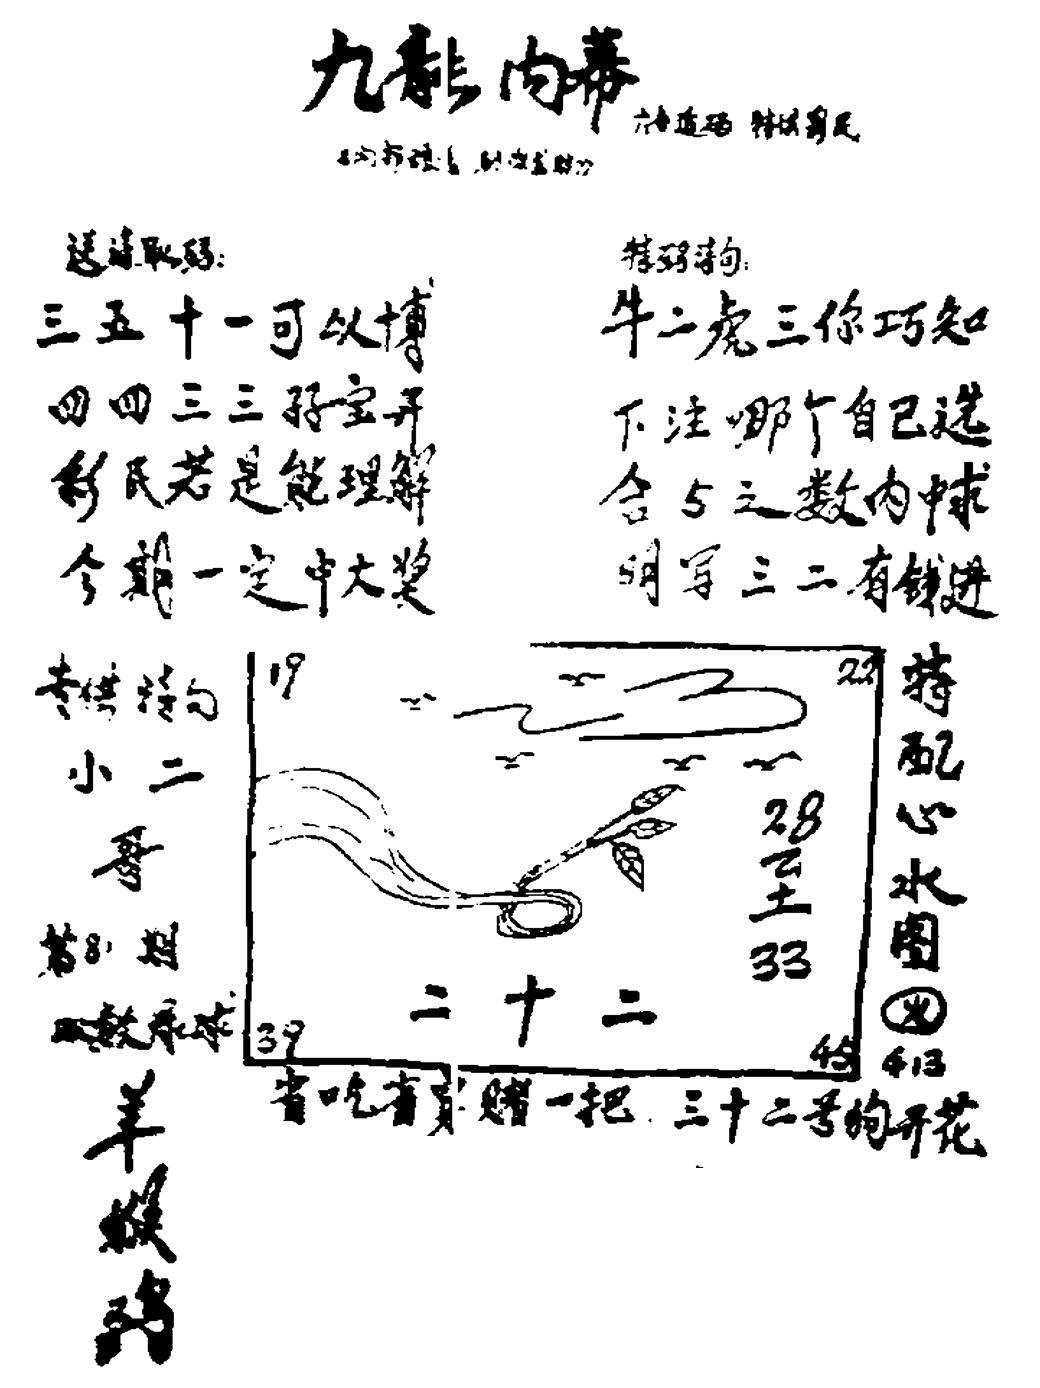 九龍内幕
送诗取码:
三五十一可以博
四四三三孖宝开
彩民若是能理解
今期一定中大奖
特码诗句:
牛二虎三你巧知
下注哪个自己选
合5之数内中求
明写三二有钱进
专供诗句
小二
哥
第81期
双数乘球
羊
猴
鸡
19
22
28
至
33
二十二
39
45
特配心水图
413
省吃省穿赌一把
三十二号狗开花